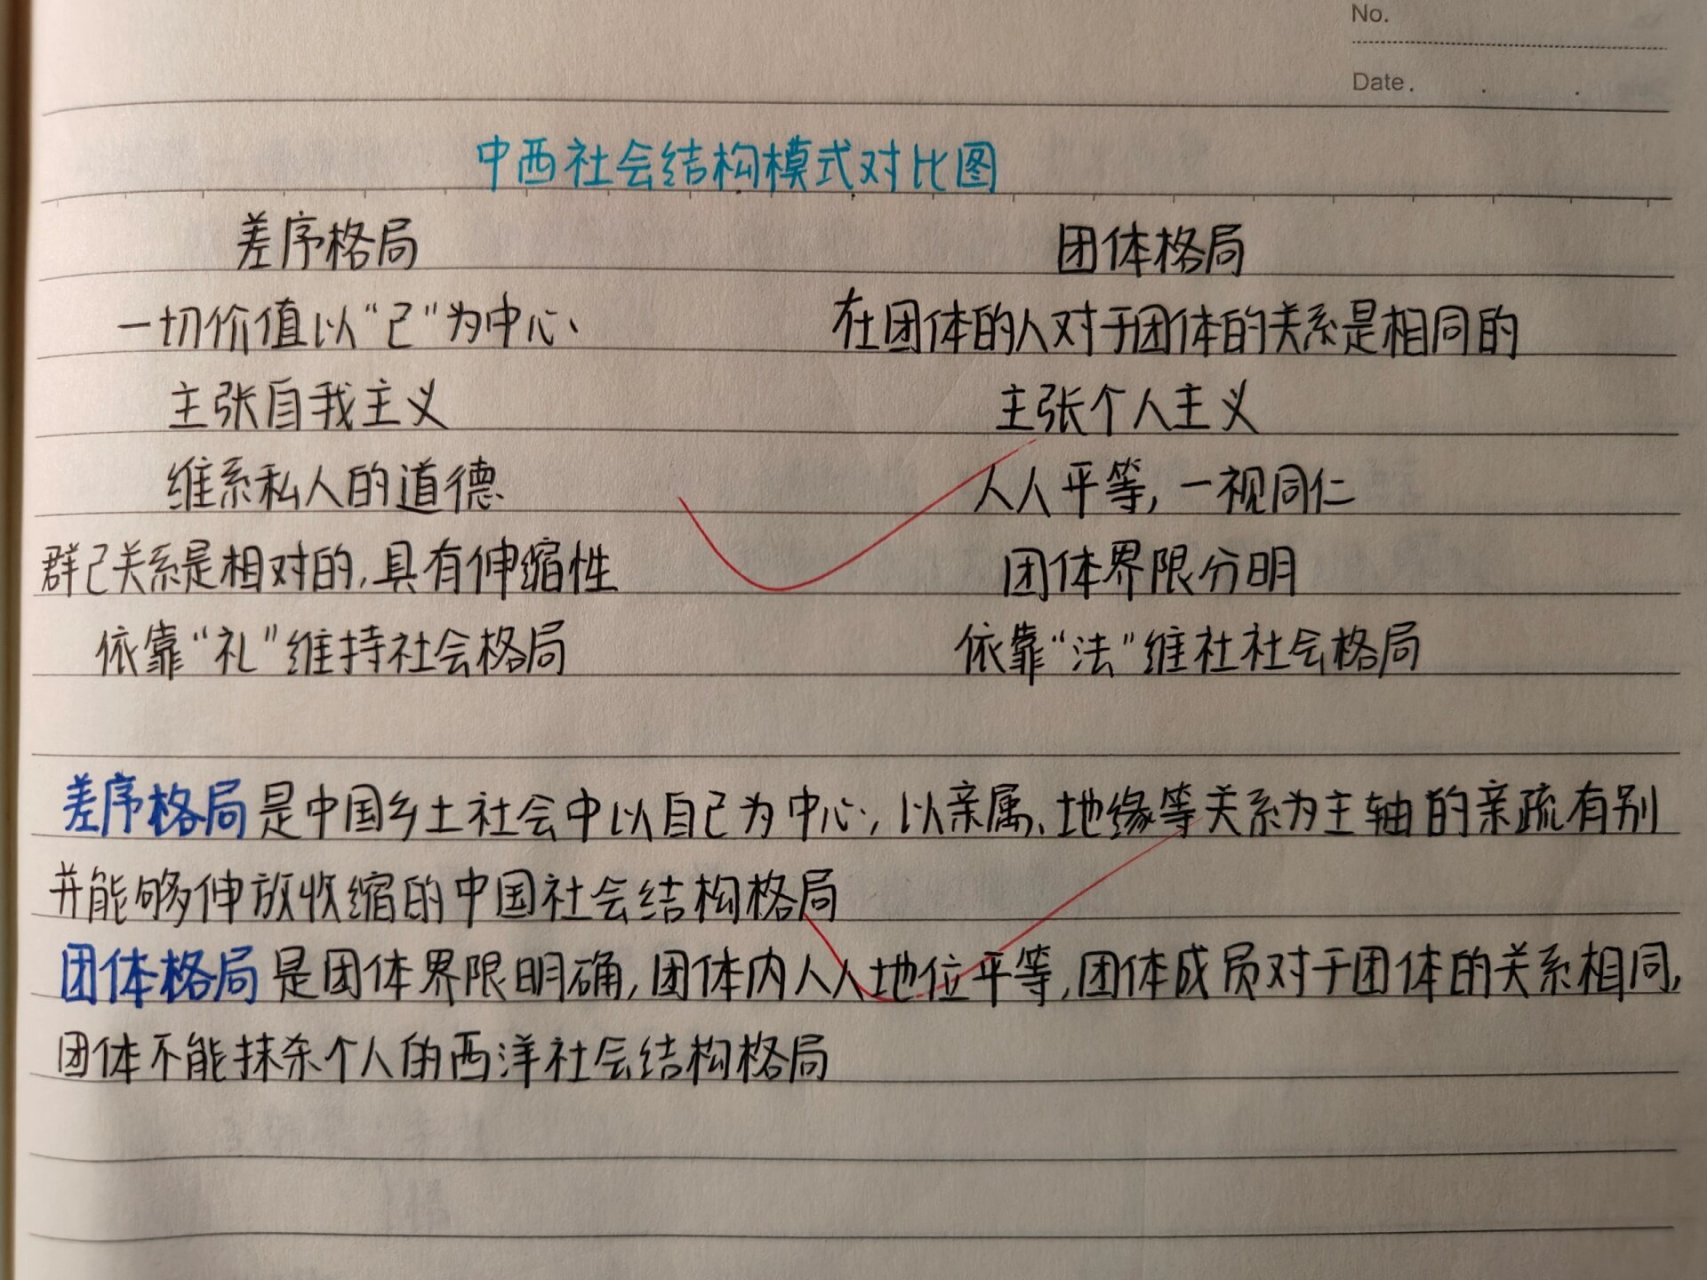 No.
Date. . .
中西社会结构模式对比图
差序格局 团体格局
一切价值以“己”为中心 在团体的人对于团体的关系是相同的
主张自我主义 主张个人主义
维系私人的道德 人人平等,一视同仁
群己关系是相对的,具有伸缩性 团体界限分明
依靠“礼”维持社会格局 依靠“法”维社社会格局
差序格局是中国乡土社会中以自己为中心,以亲属、地缘等关系为主轴的亲疏有别
并能够伸放收缩的中国社会结构格局
团体格局是团体界限明确,团体内人人地位平等,团体成员对于团体的关系相同,
团体不能抹杀个人的西洋社会结构格局